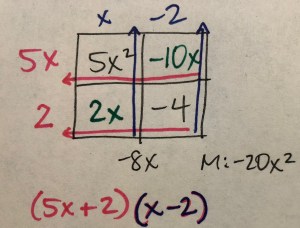 x -2
5x 5x² -10x
2 2x -4
-8x M:-20x²
(5x+2)(x-2)